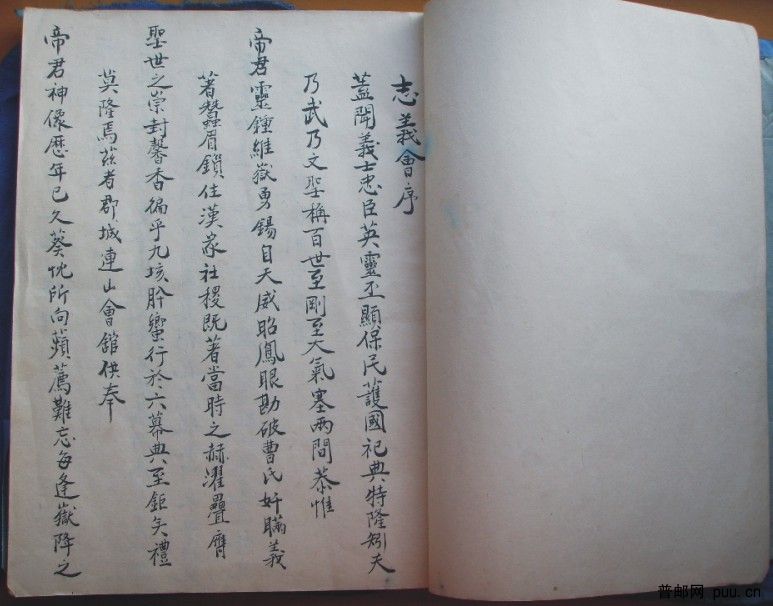 志義會序
蓋聞義士忠臣英靈丕顯保民護國祀典特隆矧夫
乃武乃文聖稱百世至剛至大氣塞兩間恭惟
帝君靈鍾維嶽勇錫自天威昭鳳眼勘破曹氏奸瞞義
著蠶眉鎖住漢家社稷既著當時之赫濯疊膺
聖世之崇封馨香徧乎九垓肸蠁行於六幕典至鉅矣禮
莫隆焉茲者郡城連山會館供奉
帝君神像歷年已久葵忱所向蘋薦難忘每逢嶽降之
普邮网 puu.cn